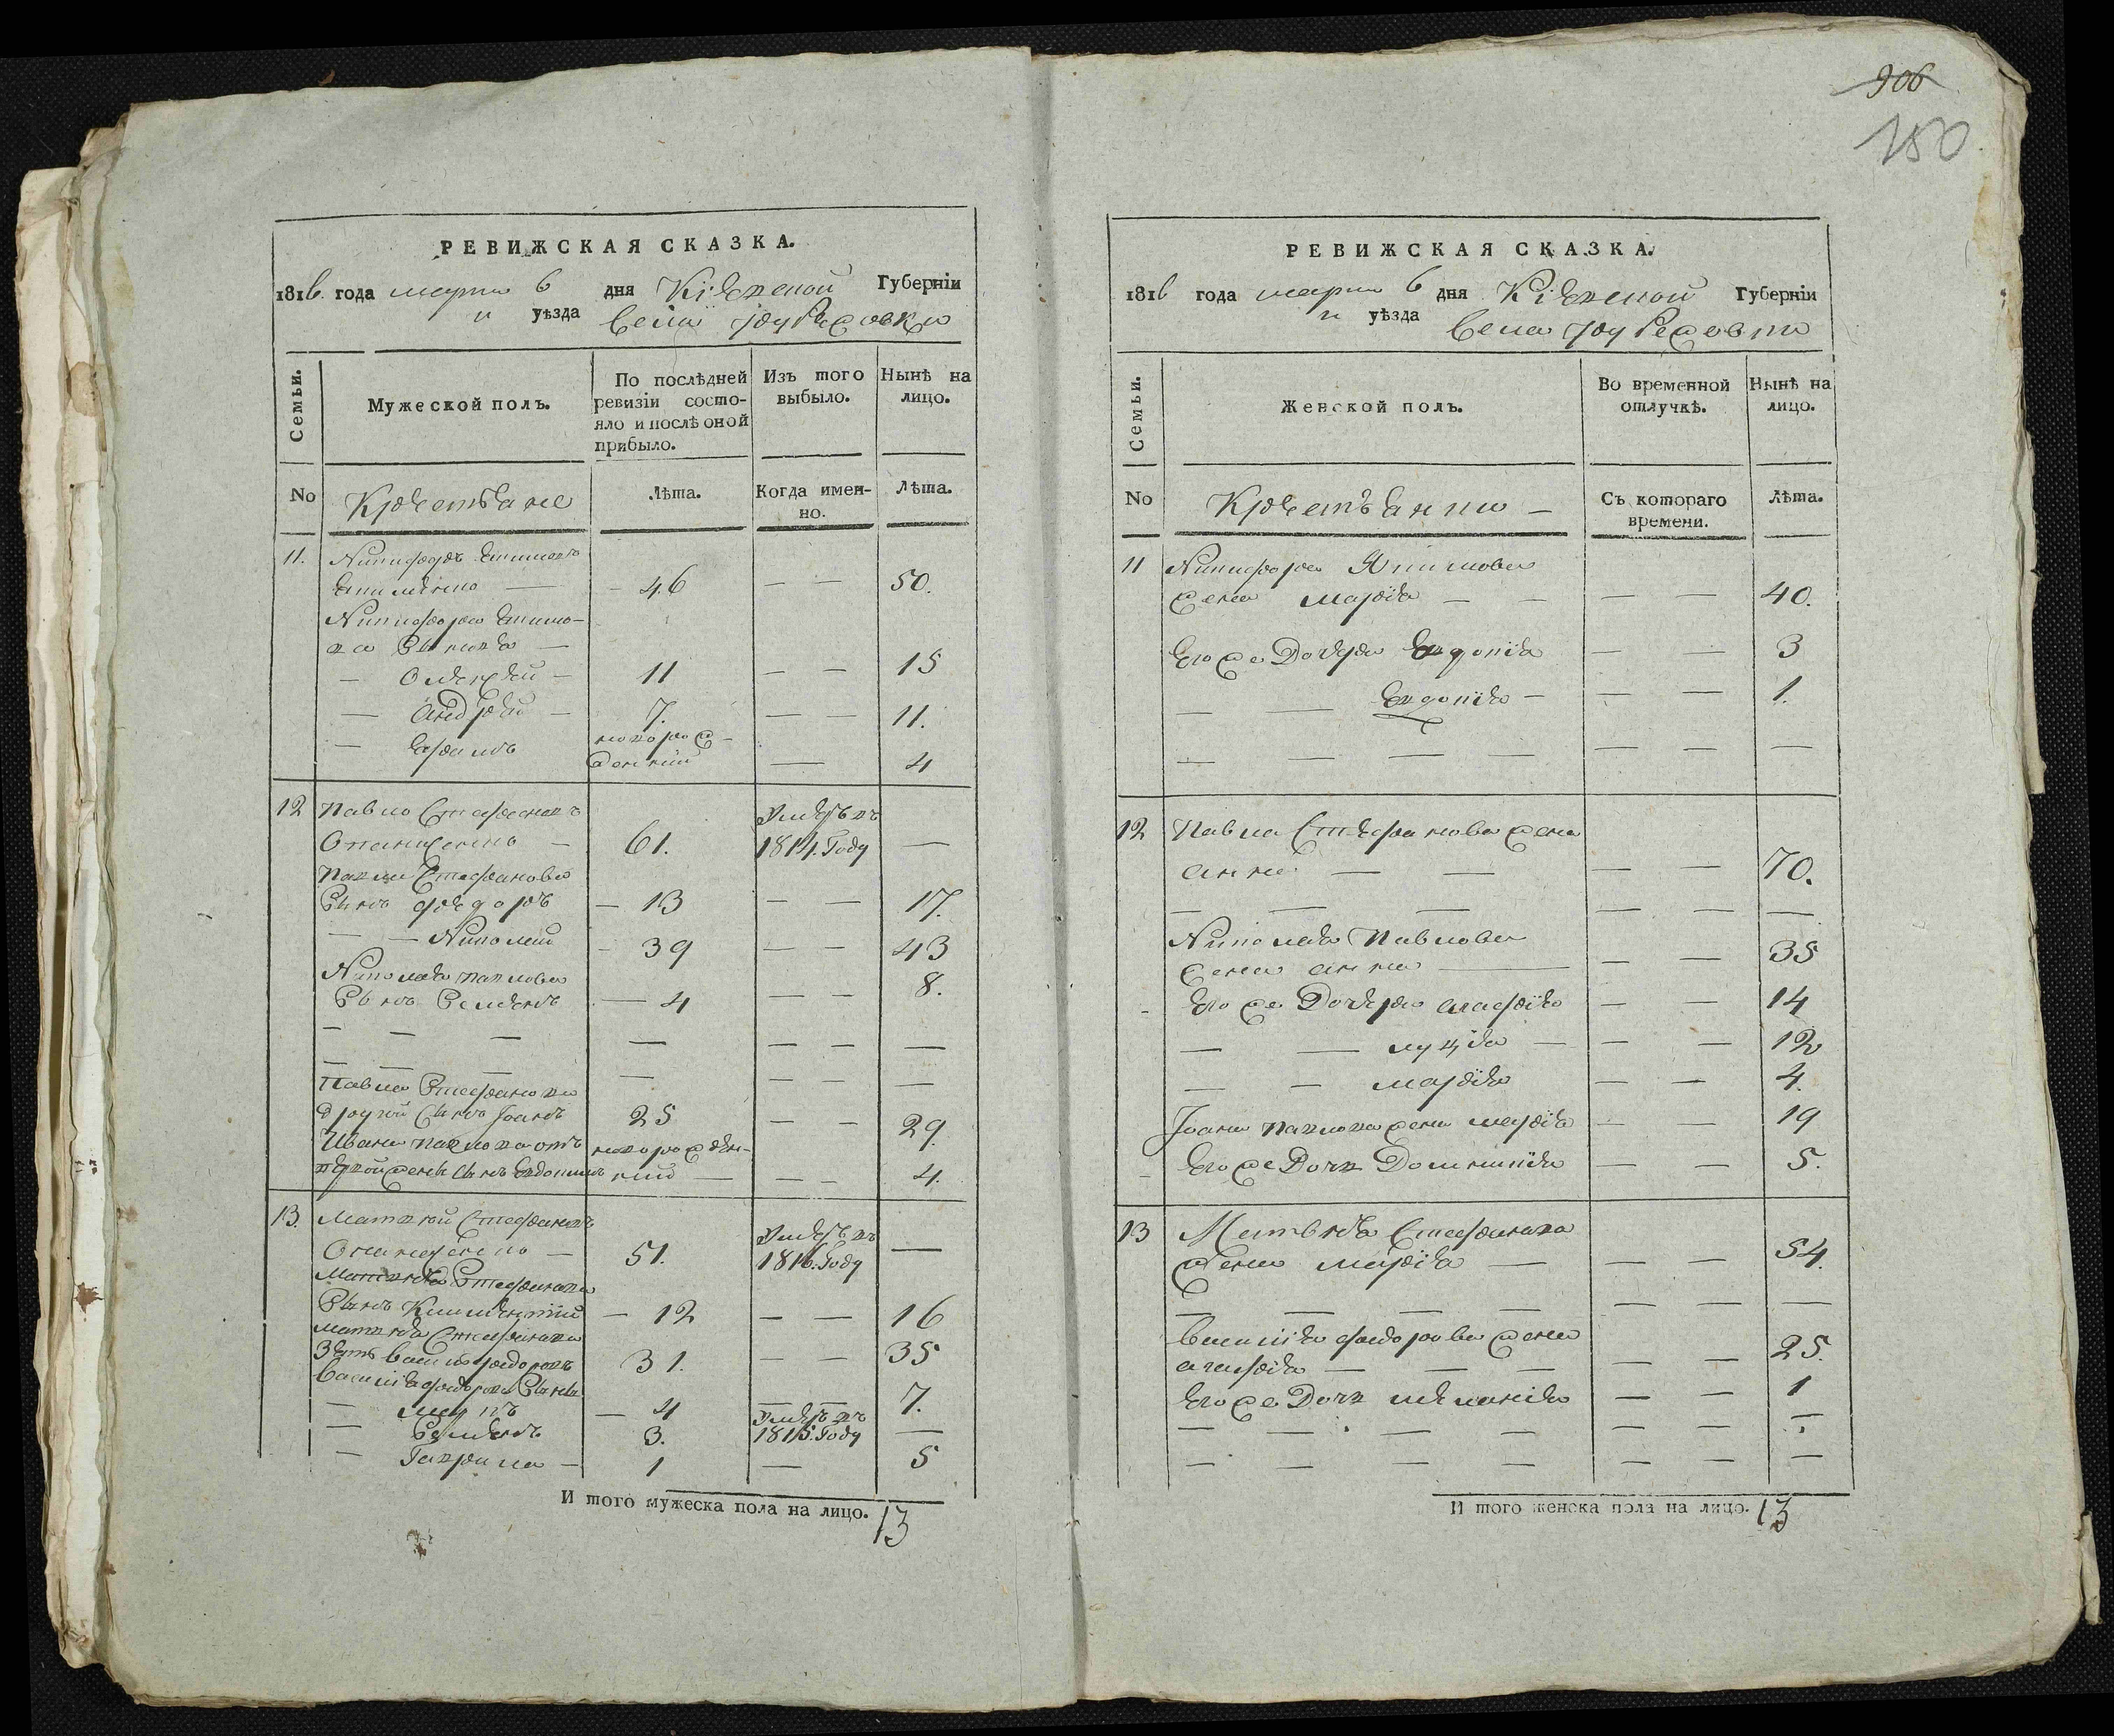 906
150
РЕВИЖСКАЯ СКАЗКА.
1816 года марта 6 дня Кіевской Губерніи
и уѣзда Села
Семьи.
Мужеской полъ.
По послѣдней ревизіи состояло и послѣ оной прибыло.
Изъ того выбыло.
Нынѣ на лицо.
No
Крестьяне
Лѣта.
Когда именно.
Лѣта.
11. Никифоръ Екимовъ
Екименко — 46 — — 50.
Никифора Екимова
Сыновья —
— Олексей — 11 — — 15
— Андрей — 7. — — 11.
— Ефимъ новорож-
денный — 4
12 Павло Стефановъ Умеръ въ
Опанасенко — 61. 1814. Году —
Павла Стефанова
Сынъ Федоръ — 13 — — 17.
— — Николай — 39 — — 43
Николая Павлова
Сынъ Семенъ — 4 — — 8.
— — — — — — —
— — — — — — —
Павла Стефанова
другой Сынъ Іоанъ 25 — — 29.
Ивана Павлова отъ новорожден-
первой жены Сынъ Евдокимъ ный — — — 4.
13. Матвей Стефановъ Умеръ въ
Опанасенко — 51. 1816. Году —
Матвея Стефанова
Сынъ Климентій — 12 — — 16
Матвея Стефанова
Зять Василь Федоровъ 31. — — 35
Василія Федорова Сыновья
— — 4 — — 7.
— Семенъ 3. Умеръ въ 1815. Году —
— Гаврила — 1 — 5
И того мужеска пола на лицо. 13
РЕВИЖСКАЯ СКАЗКА.
1816 года марта 6 дня Кіевской Губерніи
и уѣзда Села
Семьи.
Женской полъ.
Во временной отлучкѣ.
Нынѣ на лицо.
No
Крестьянки —
Съ котораго времени.
Лѣта.
11 Никифора Якимова
жена Марія — — — — 40.
Его же Дочеря Евдокія — — 3
— — Евдокія — — — 1.
— — — — — — —
12 Павла Стефанова жена
Анна — — — — 70.
— — — — — —
Николая Павлова
жена Анна — — — 35
Его же Дочеря Агафія — — 14
— — Луція — — — 12
— — Марія — — 4.
Іоана Павлова жена Марія — — 19
Его же Дочь Домникія — — 5.
13 Матвея Стефанова
жена Марія — — — 54.
— — — — — — —
Василія Федорова жена
Агафія — — — — — 25.
Его же Дочь Меланія — — 1
— — — — — — —
— — — — — — —
И того женска пола на лицо. 13